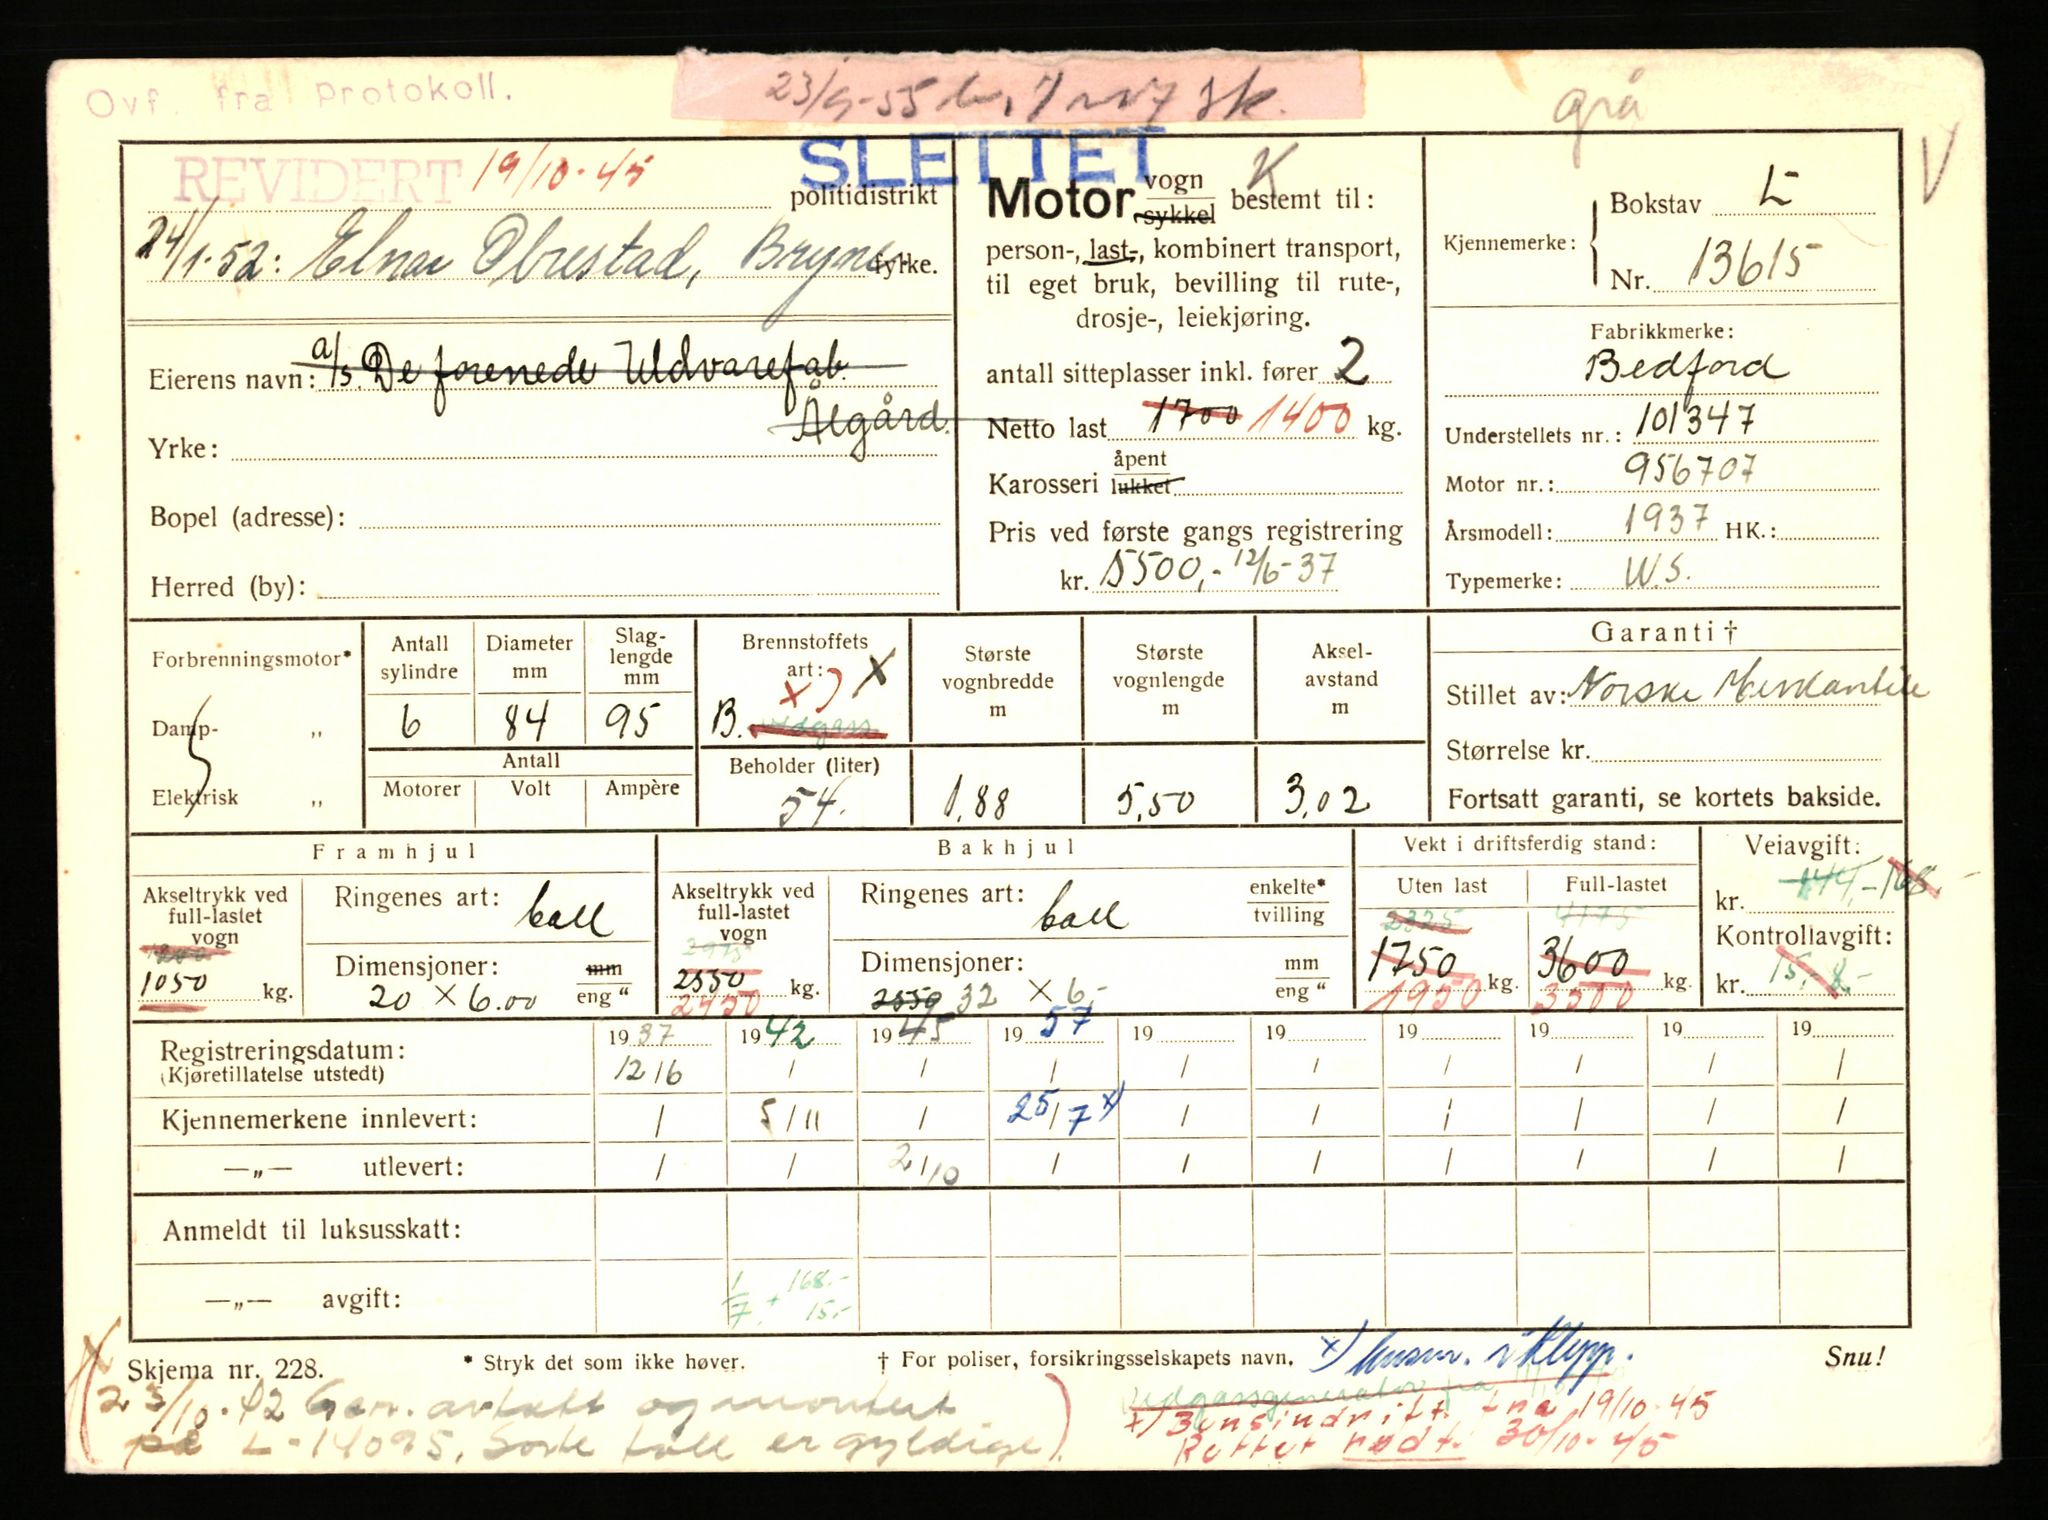 Ovf. fra Protokoll.
23/9-55
grå
V
SLETTET
REVIDERT 19/10-45
politidistrikt
24/1-52: Elnar Obrestad, Bryne
fylke.
Eierens navn: a/s. De forenede Uldvarefab.
Ålgård.
Yrke:
Bopel (adresse):
Herred (by):
Motor vogn/sykkel bestemt til:
person-, last-, kombinert transport,
til eget bruk, bevilling til rute-,
drosje-, leiekjøring.
antall sitteplasser inkl. fører 2
Netto last 1700 1400 kg.
Karosseri åpent/lukket
Pris ved første gangs registrering
kr. 5500,- 12/6-37
Kjennemerke:
Bokstav L
Nr. 13615
Fabrikkmerke:
Bedford
Understellets nr.: 101347
Motor nr.: 956707
Årsmodell: 1937 HK.:
Typemerke: W.S.
Forbrenningsmotor*
Damp- „
Elektrisk „
Antall sylindre
Diameter mm
Slag-lengde mm
6 84 95
Antall
Motorer Volt Ampère
Brennstoffets art: x) X
B. vedgass
Beholder (liter)
54.
Største vognbredde m
1,88
Største vognlengde m
5,50
Aksel-avstand m
3,02
Garanti †
Stillet av: Norske Merkantile
Størrelse kr.
Fortsatt garanti, se kortets bakside.
Framhjul
Akseltrykk ved full-lastet vogn
1200
1050 kg.
Ringenes art: ball
Dimensjoner: mm/eng "
20 X 6.00
Bakhjul
Akseltrykk ved full-lastet vogn
2975
2550 kg.
2450
Ringenes art: ball enkelte*/tvilling
Dimensjoner: mm/eng "
2550 32 X 6,-
Vekt i driftsferdig stand:
Uten last Full-lastet
2325 4175
1750 kg. 3600 kg.
1950 3500
Veiavgift:
kr. 144,- 168,-
Kontrollavgift:
kr. 15,- 8,-
Registreringsdatum: 1937 1942 1945 1957 19 19 19 19 19 19
(Kjøretillatelse utstedt) 12/6 / / / / / / / / /
Kjennemerkene innlevert: / 5/11 / 25/7 x) / / / / / /
—„— utlevert: / / 2/10 / / / / / / /
Anmeldt til luksusskatt:
—„— avgift: 1/7. + 168.- 15.-
Skjema nr. 228.
* Stryk det som ikke høver.
† For poliser, forsikringsselskapets navn.
x) i Klepp.
Snu!
23/10-42 Gen. avtatt og montert
på L-14095. Sorte tall er gyldige)
Vedgassgenerator fra
x) Bensindrift fra 19/10-45
Rettet rødt. 30/10-45